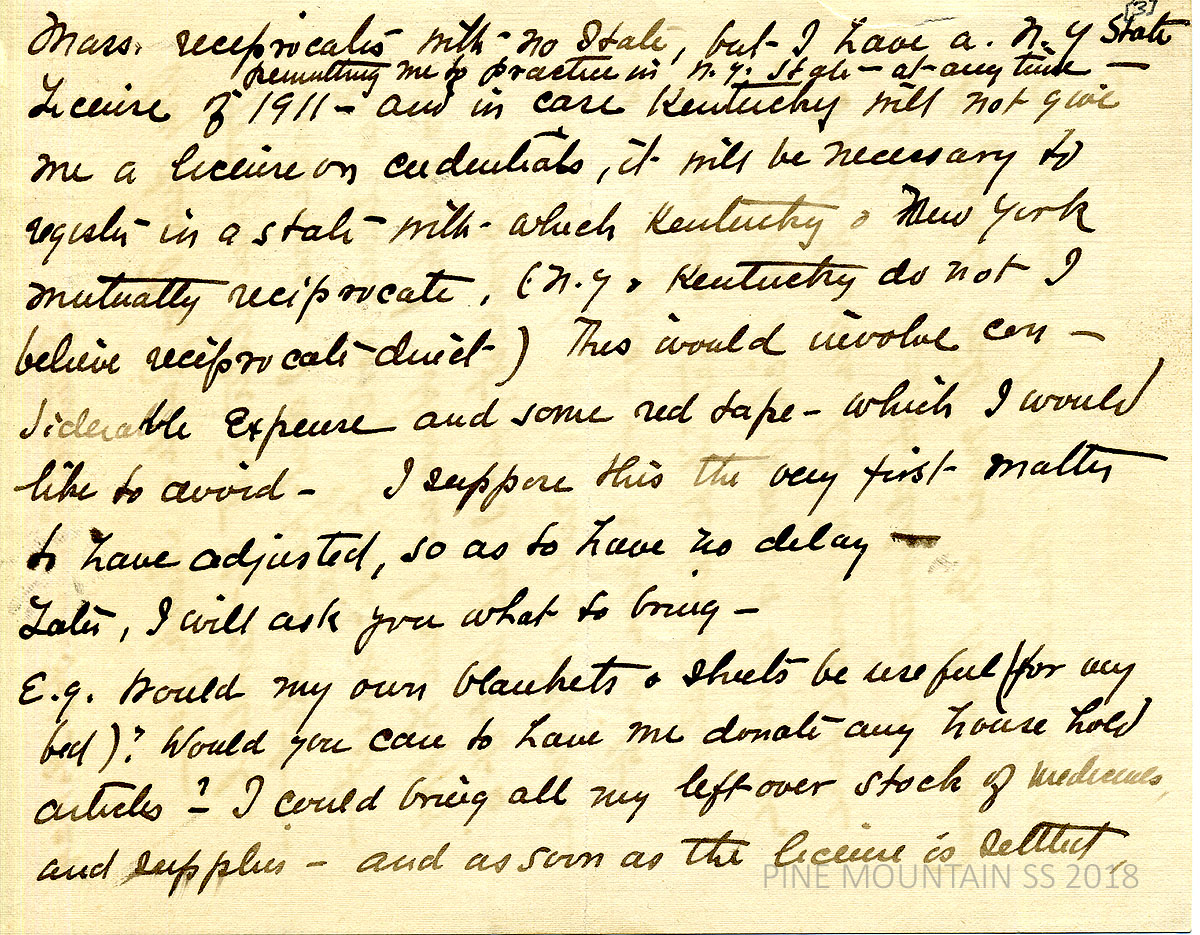 [3]
Mass. reciprocates with no State, but I have a N.Y State
permitting me to practice in N.Y. State – at any time –
License of 1911 – and in case Kentucky will not give
me a license on credentials, it will be necessary to
register in a state with which Kentucky & New York
mutually reciprocate, (N.Y. & Kentucky do not I
believe reciprocate direct) This would involve con –
siderable Expense and some red tape – which I would
like to avoid – I suppose this the very first matter
to have adjusted, so as to have no delay —
Later, I will ask you what to bring –
E.g. Would my own blankets & sheets be useful (for my
bed)? Would you care to have me donate any house hold
articles? – I could bring all my left over stock of medicines,
and supplies – and as soon as the license is settled,
PINE MOUNTAIN SS 2018